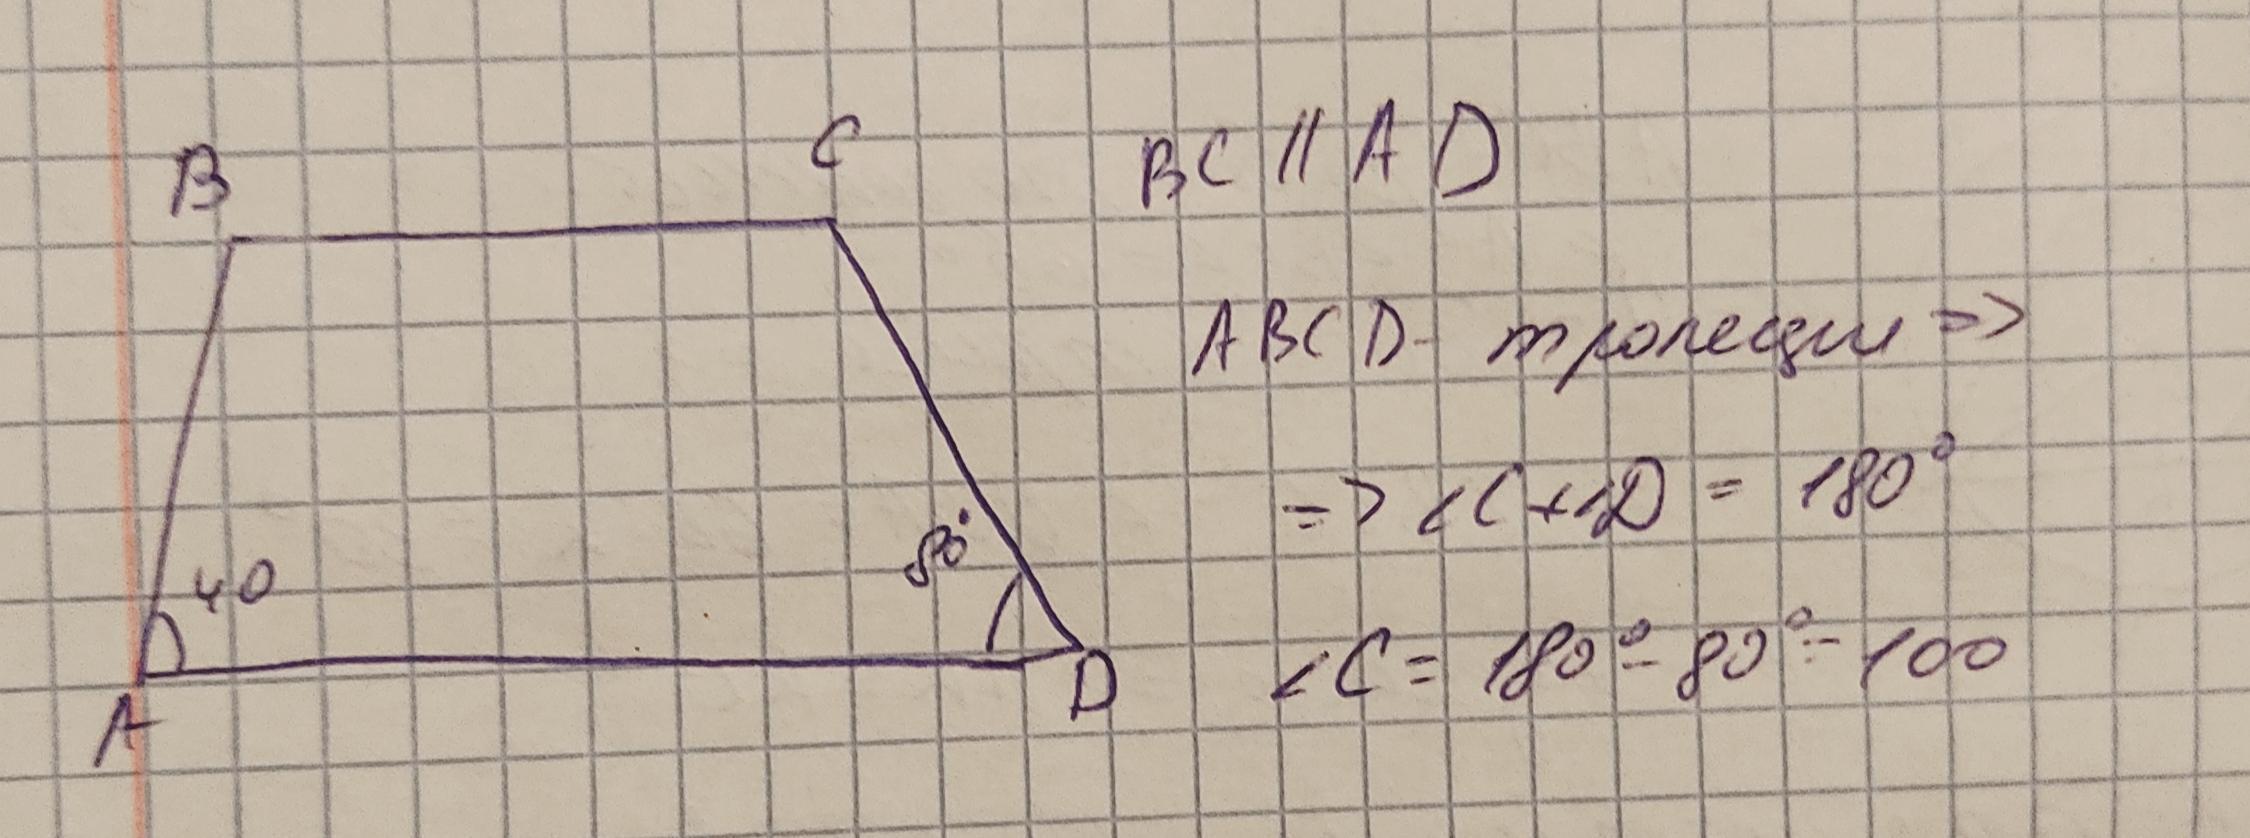 B
C
BC || AD
ABCD - трапеция =>
=> ∠C + ∠D = 180°
40
80°
∠C = 180° - 80° = 100
A
D